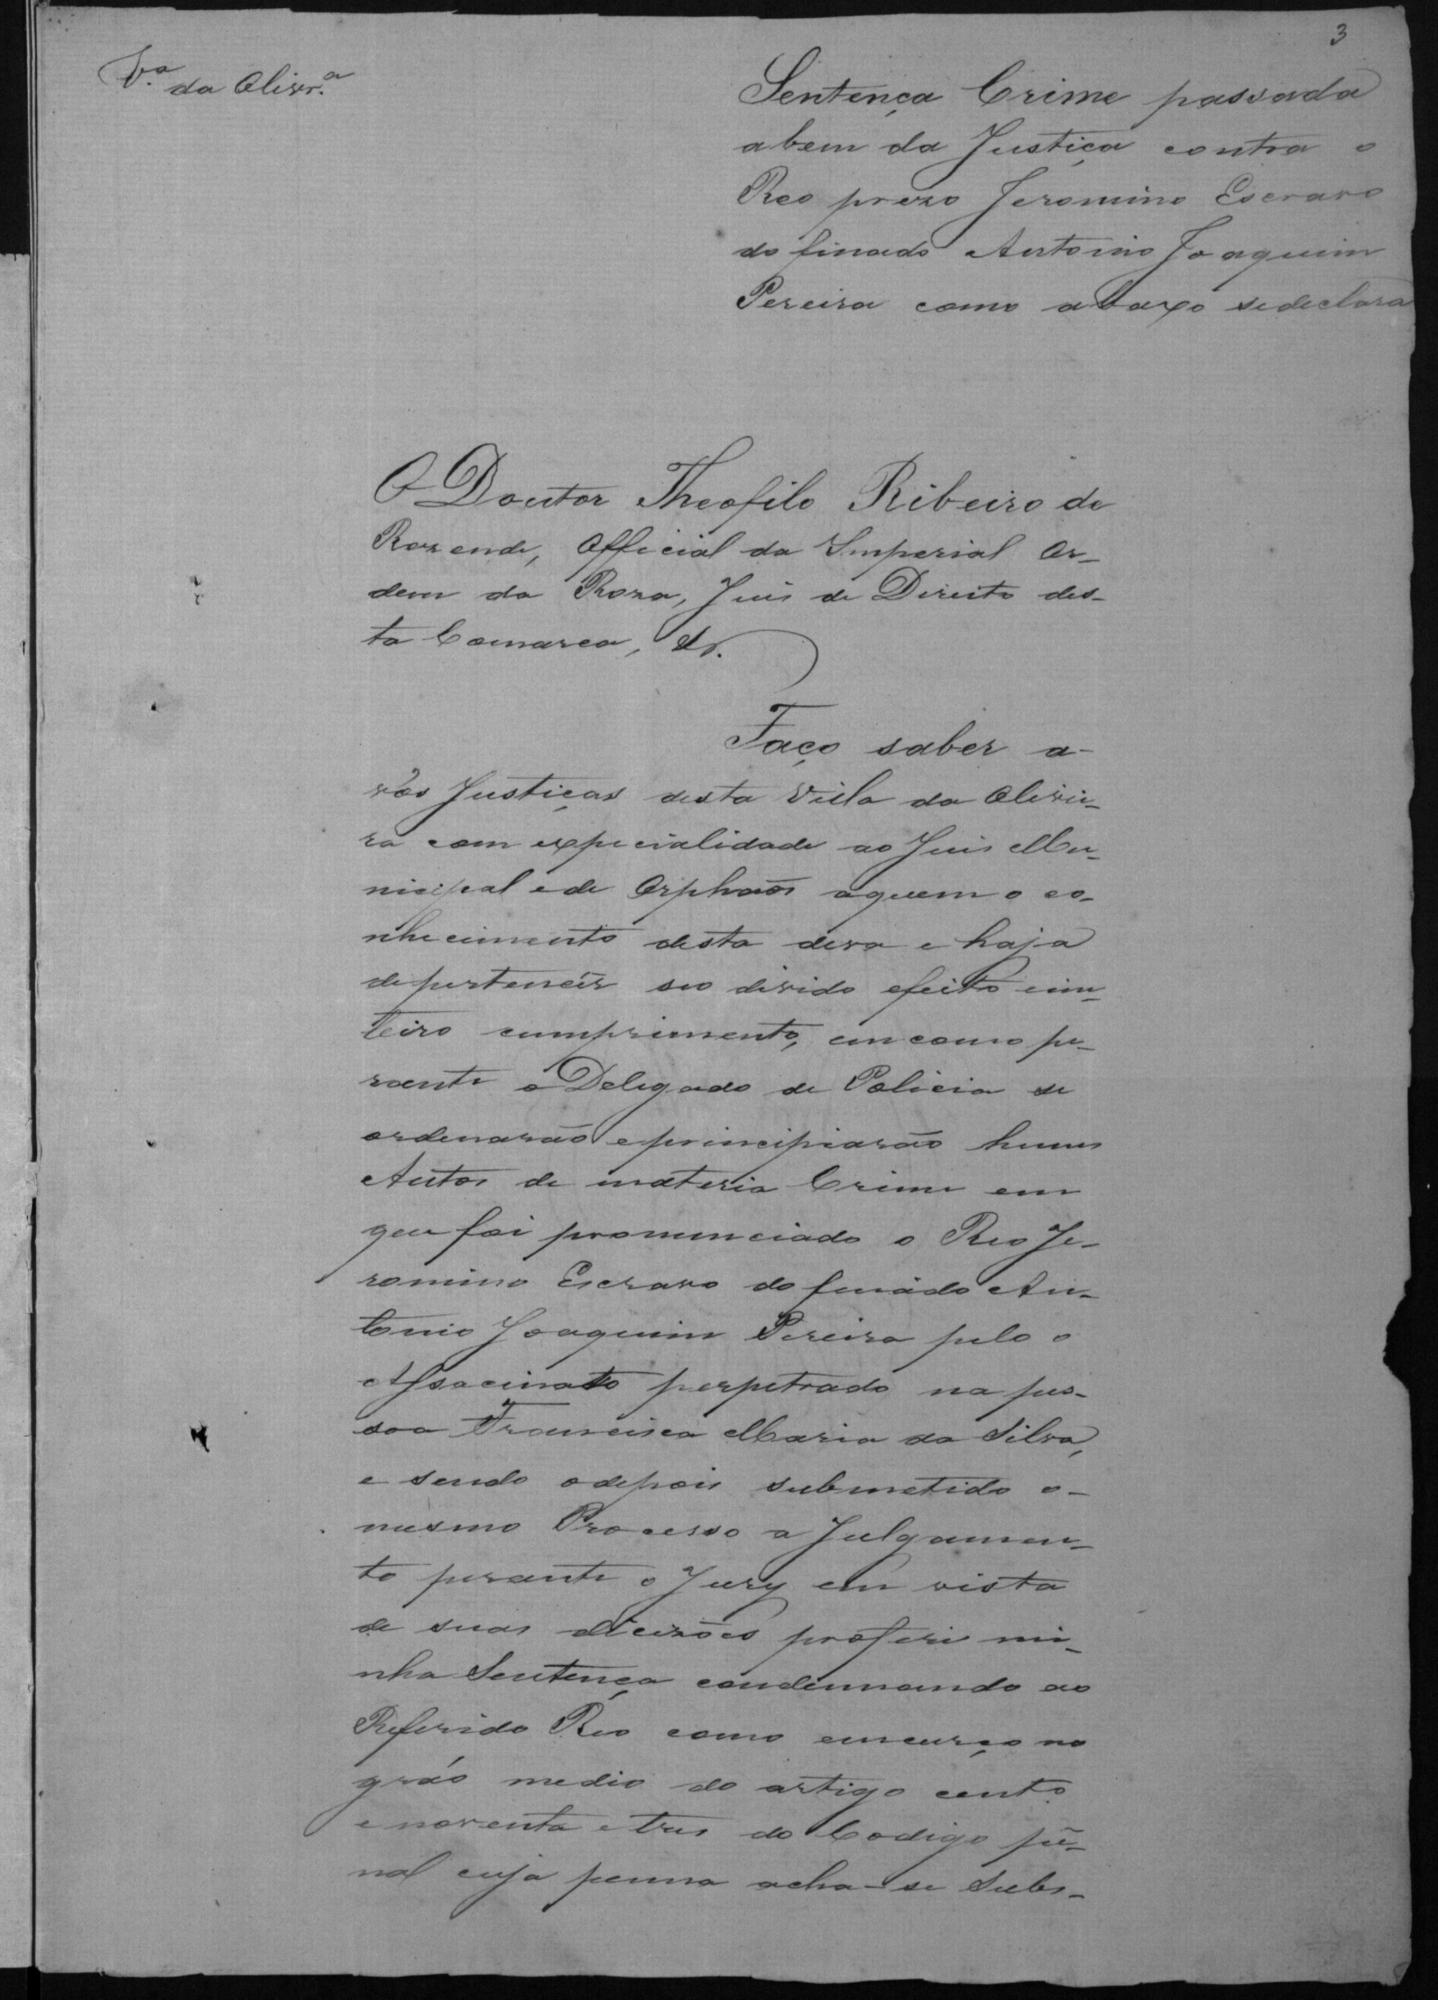 3
V.ª da Olivr.ª
Sentença Crime passada
abem da Justiça contra o
Reo prezo Jeromino Escravo
do finado Antonio Joaquim
Pereira como abaxo sedeclara
O Doutor Theofilo Ribeiro de
Rezende, Official da Imperial Or-
dem da Roza, Juis de Direito des-
ta Comarca, &.
Faço saber a-
vós Justiças desta Villa da Olivei-
ra com expecialidade ao Juis Mu-
nicipal ede Orphaõs aquem o co-
nhecimento desta deva e haja
depertencêr seo divido efeito ein-
teiro cumprimento, em como pe-
rante o Delegado de Policia se
ordenarão eprincipiarão huns
Autos de materia Crime em
que foi pronunciado o Reo Je-
romino Escravo do finádo An-
tonio Joaquim Pereira pelo o
Assacinato perpetrado na pes-
soa Francisca Maria da Silva,
e sendo adepois submetido o-
mesmo Processo a Julgamen-
to perante o Jury em vista
de suas decizões proferi mi-
nha Sentença condemnando ao
Referido Reo como emcurço no
gráo medio do artigo cento
e noventa e tres do Codigo pe-
nal cuja penna acha-se Subs-